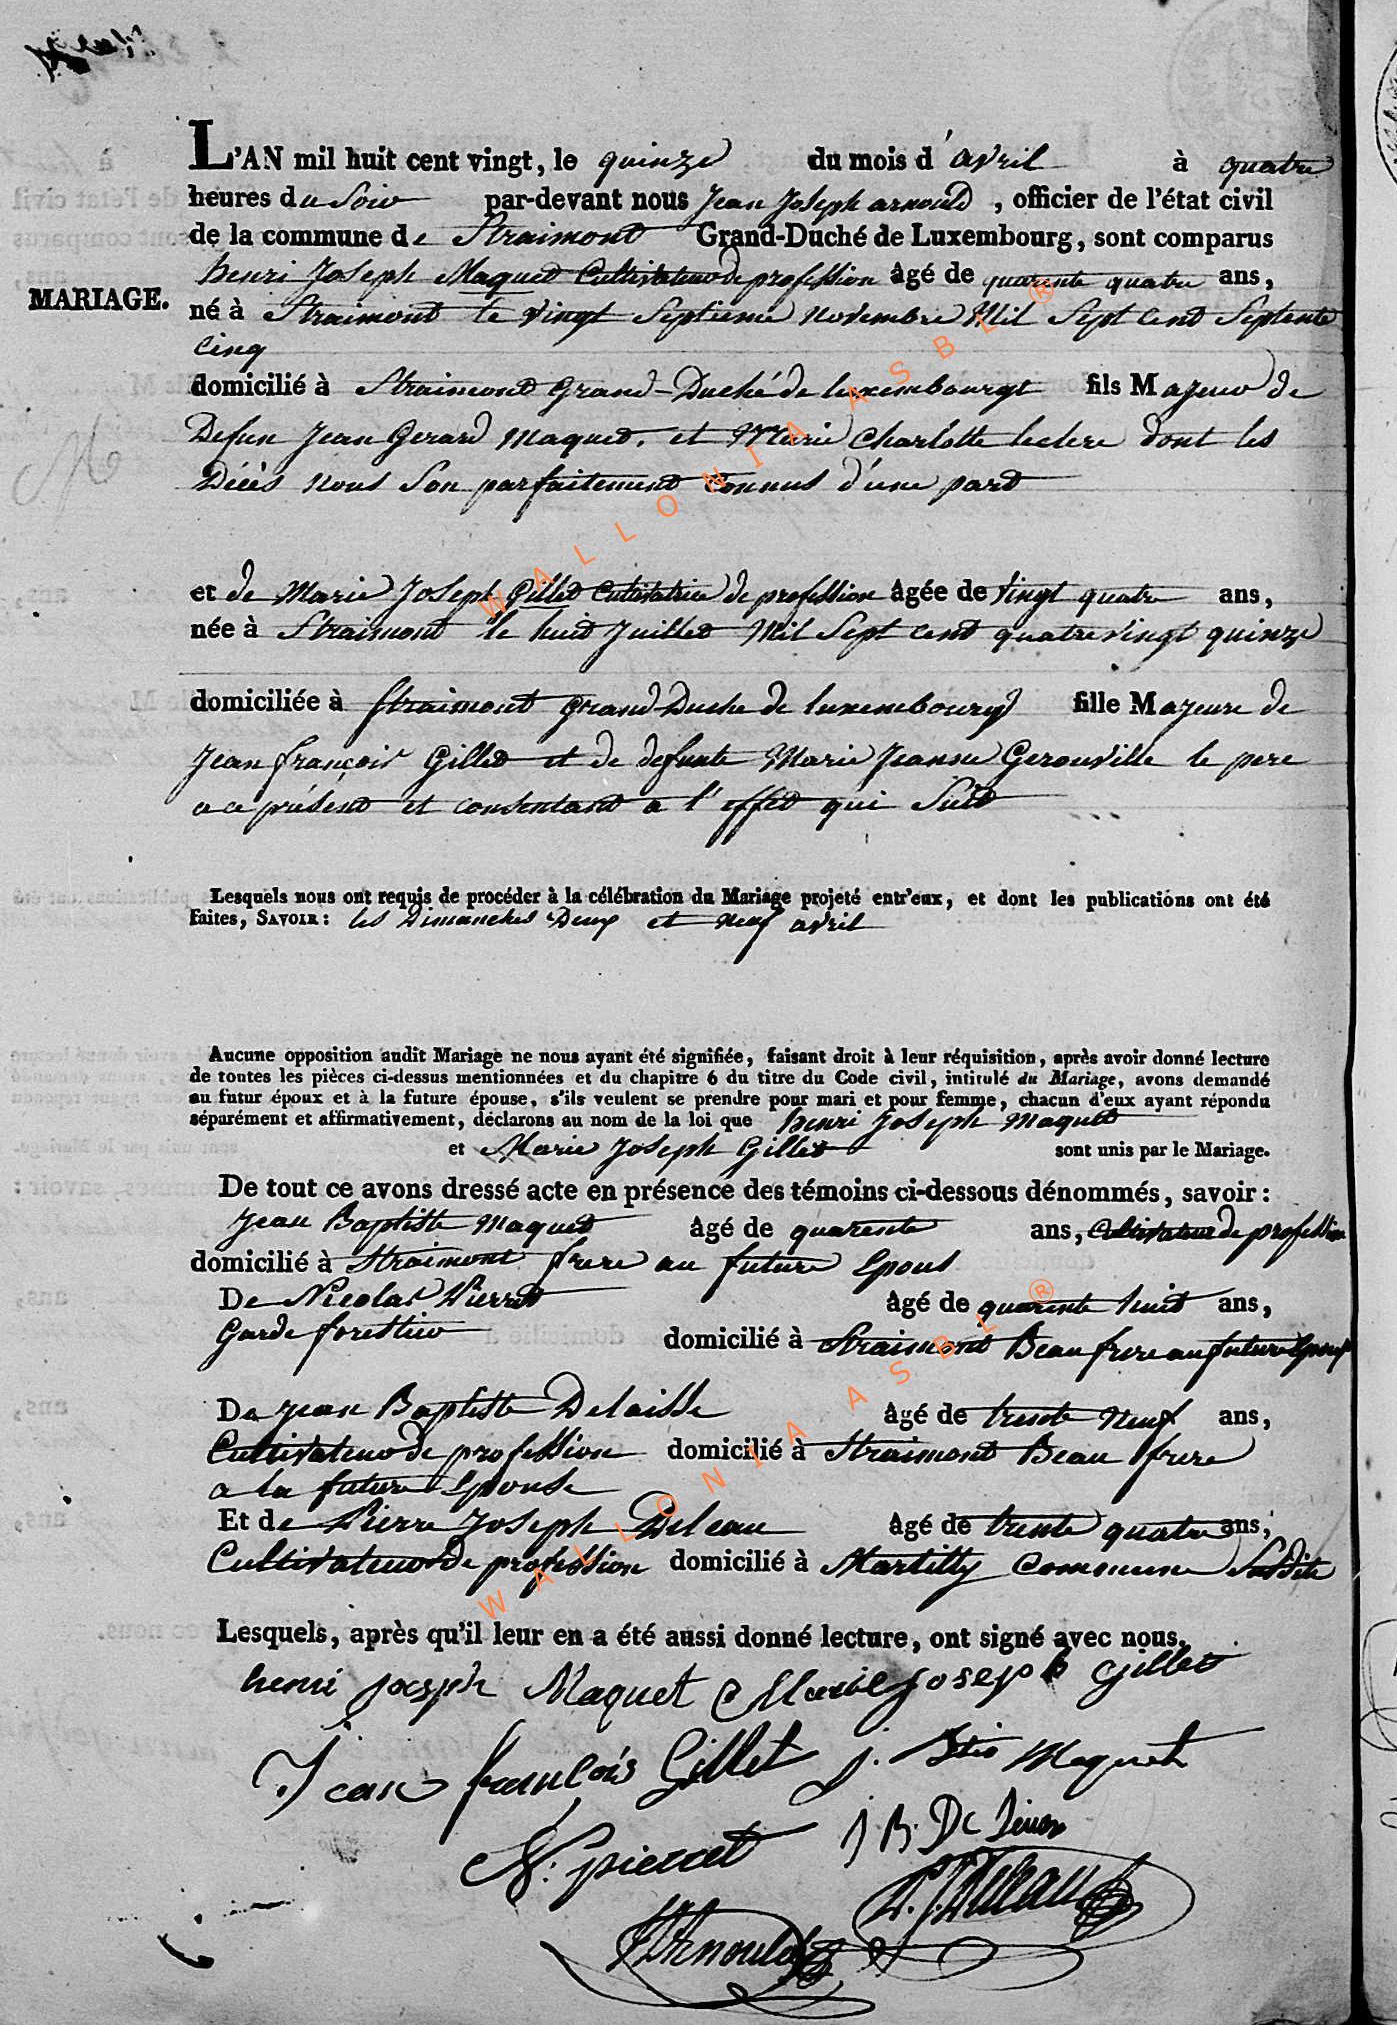 L'AN mil huit cent vingt, le quinze du mois d'avril à quatre
heures du Soir par-devant nous Jean Joseph arnould, officier de l'état civil
de la commune de Straimont Grand-Duché de Luxembourg, sont comparus
henri Joseph Maquet Cultivateur de profession âgé de quarente quatre ans,
MARIAGE.
né à Straimont le vingt Septieme novembre Mil Sept Cent Septente
cinq
domicilié à Straimont Grand-Duché de luxembourgt fils Majeur de
Defun Jean Gerard Maquet. et Marie Charlotte leclere dont les
Décès nous Son parfaitement Connus d'une part
et de Marie Joseph Gillet Cultivatrice de profession âgée de vingt quatre ans,
née à Straimont le huit Juillet Mil Sept cent quatre vingt quinze
domiciliée à Straimont Grand Duché de luxembourg fille Majeure de
Jean françois Gillet et de defunte Marie Jeanne Gerouville le pere
a ce présent et consentant a l'effet qui Suit
Lesquels nous ont requis de procéder à la célébration du Mariage projeté entr'eux, et dont les publications ont été
faites, SAVOIR: les Dimanches Deux et neuf avril
Aucune opposition audit Mariage ne nous ayant été signifiée, faisant droit à leur réquisition, après avoir donné lecture
de toutes les pièces ci-dessus mentionnées et du chapitre 6 du titre du Code civil, intitulé du Mariage, avons demandé
au futur époux et à la future épouse, s'ils veulent se prendre pour mari et pour femme, chacun d'eux ayant répondu
séparément et affirmativement, déclarons au nom de la loi que henri Joseph Maquet
et Marie Joseph Gillet sont unis par le Mariage.
De tout ce avons dressé acte en présence des témoins ci-dessous dénommés, savoir:
Jean Baptiste Maquet âgé de quarente ans, Cultivateur de profession
domicilié à Straimont frere au future Epous
De Nicolas Pierret âgé de quarente huit ans,
Garde forestier domicilié à Straimont Beau frere au future Epous
De Jean Baptiste Delaisse âgé de trente neuf ans,
Cultivateur de profession domicilié à Straimont Beau frere
a la future Epouse
Et de Pierre Joseph Deleau âgé de trente quatre ans,
Cultivateur de profession domicilié à Martilly Commune Susdite
Lesquels, après qu'il leur en a été aussi donné lecture, ont signé avec nous.
henri joseph Maquet Marie Joseph Gillet
Jean françois Gillet j. Btis Maquet
N: pierret J B. De
P. J. Deleau
Arnould
WALLONIA ASBL ®
WALLONIA ASBL ®